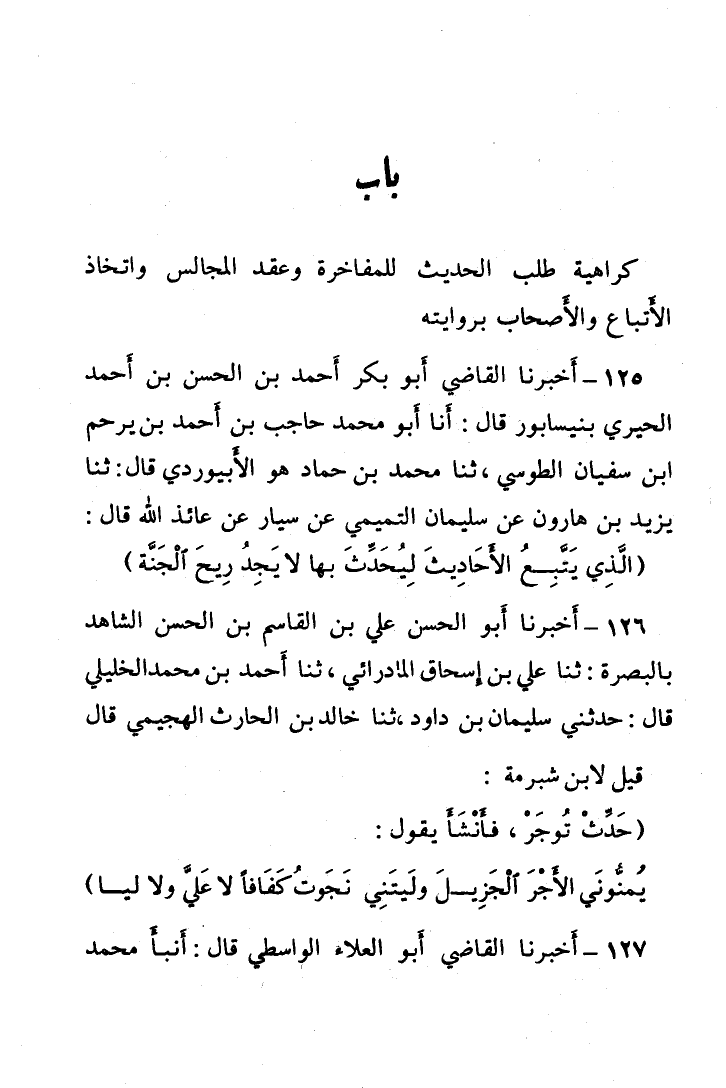 باب
كراهية طلب الحديث للمفاخرة وعقد المجالس واتخاذ
الأَتباع والأَصحاب بروايته
١٢٥ – أَخبرنا القاضي أَبو بكر أَحمد بن الحسن بن أَحمد
الحيري بنيسابور قال : أَنا أَبو محمد حاجب بن أَحمد بن يرحم
ابن سفيان الطوسي ، ثنا محمد بن حماد هو الأَبيوردي قال : ثنا
يزيد بن هارون عن سليمان التميمي عن سيار عن عائذ الله قال :
( الَّذِي يَتَّبِعُ الأَحَادِيثَ لِيُحَدِّثَ بها لا يَجِدُ رِيحَ ٱلْجَنَّة )
١٢٦ – أَخبرنا أَبو الحسن علي بن القاسم بن الحسن الشاهد
بالبصرة : ثنا علي بن إسحاق المادرائي ، ثنا أَحمد بن محمد الخليلي
قال : حدثني سليمان بن داود ، ثنا خالد بن الحارث الهجيمي قال
قيل لابن شبرمة :
( حَدِّثْ تُوجَرْ ، فَأَنْشَأَ يقول :
يُمنُّونَي الأَجْرَ ٱلْجَزِيلَ ولَيتَنِي نَجَوتُ كَفَافاً لا عَليَّ ولا ليا )
١٢٧ – أَخبرنا القاضي أَبو العلاء الواسطي قال : أَنبأَ محمد